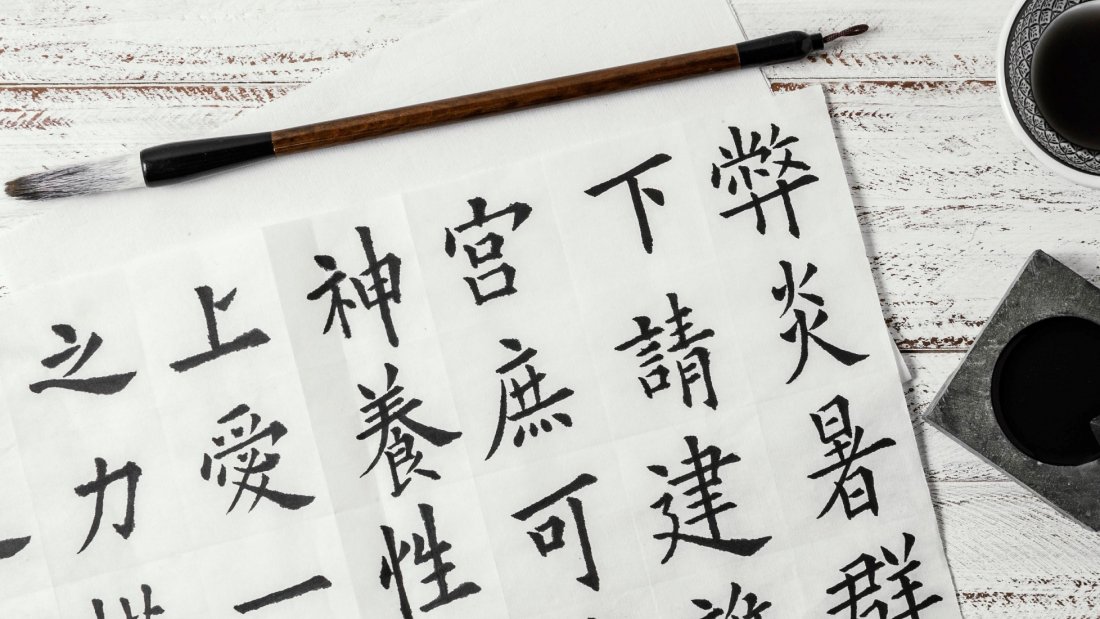 弊炎暑群
下請建
宮庶可
神養性
上愛一
之力